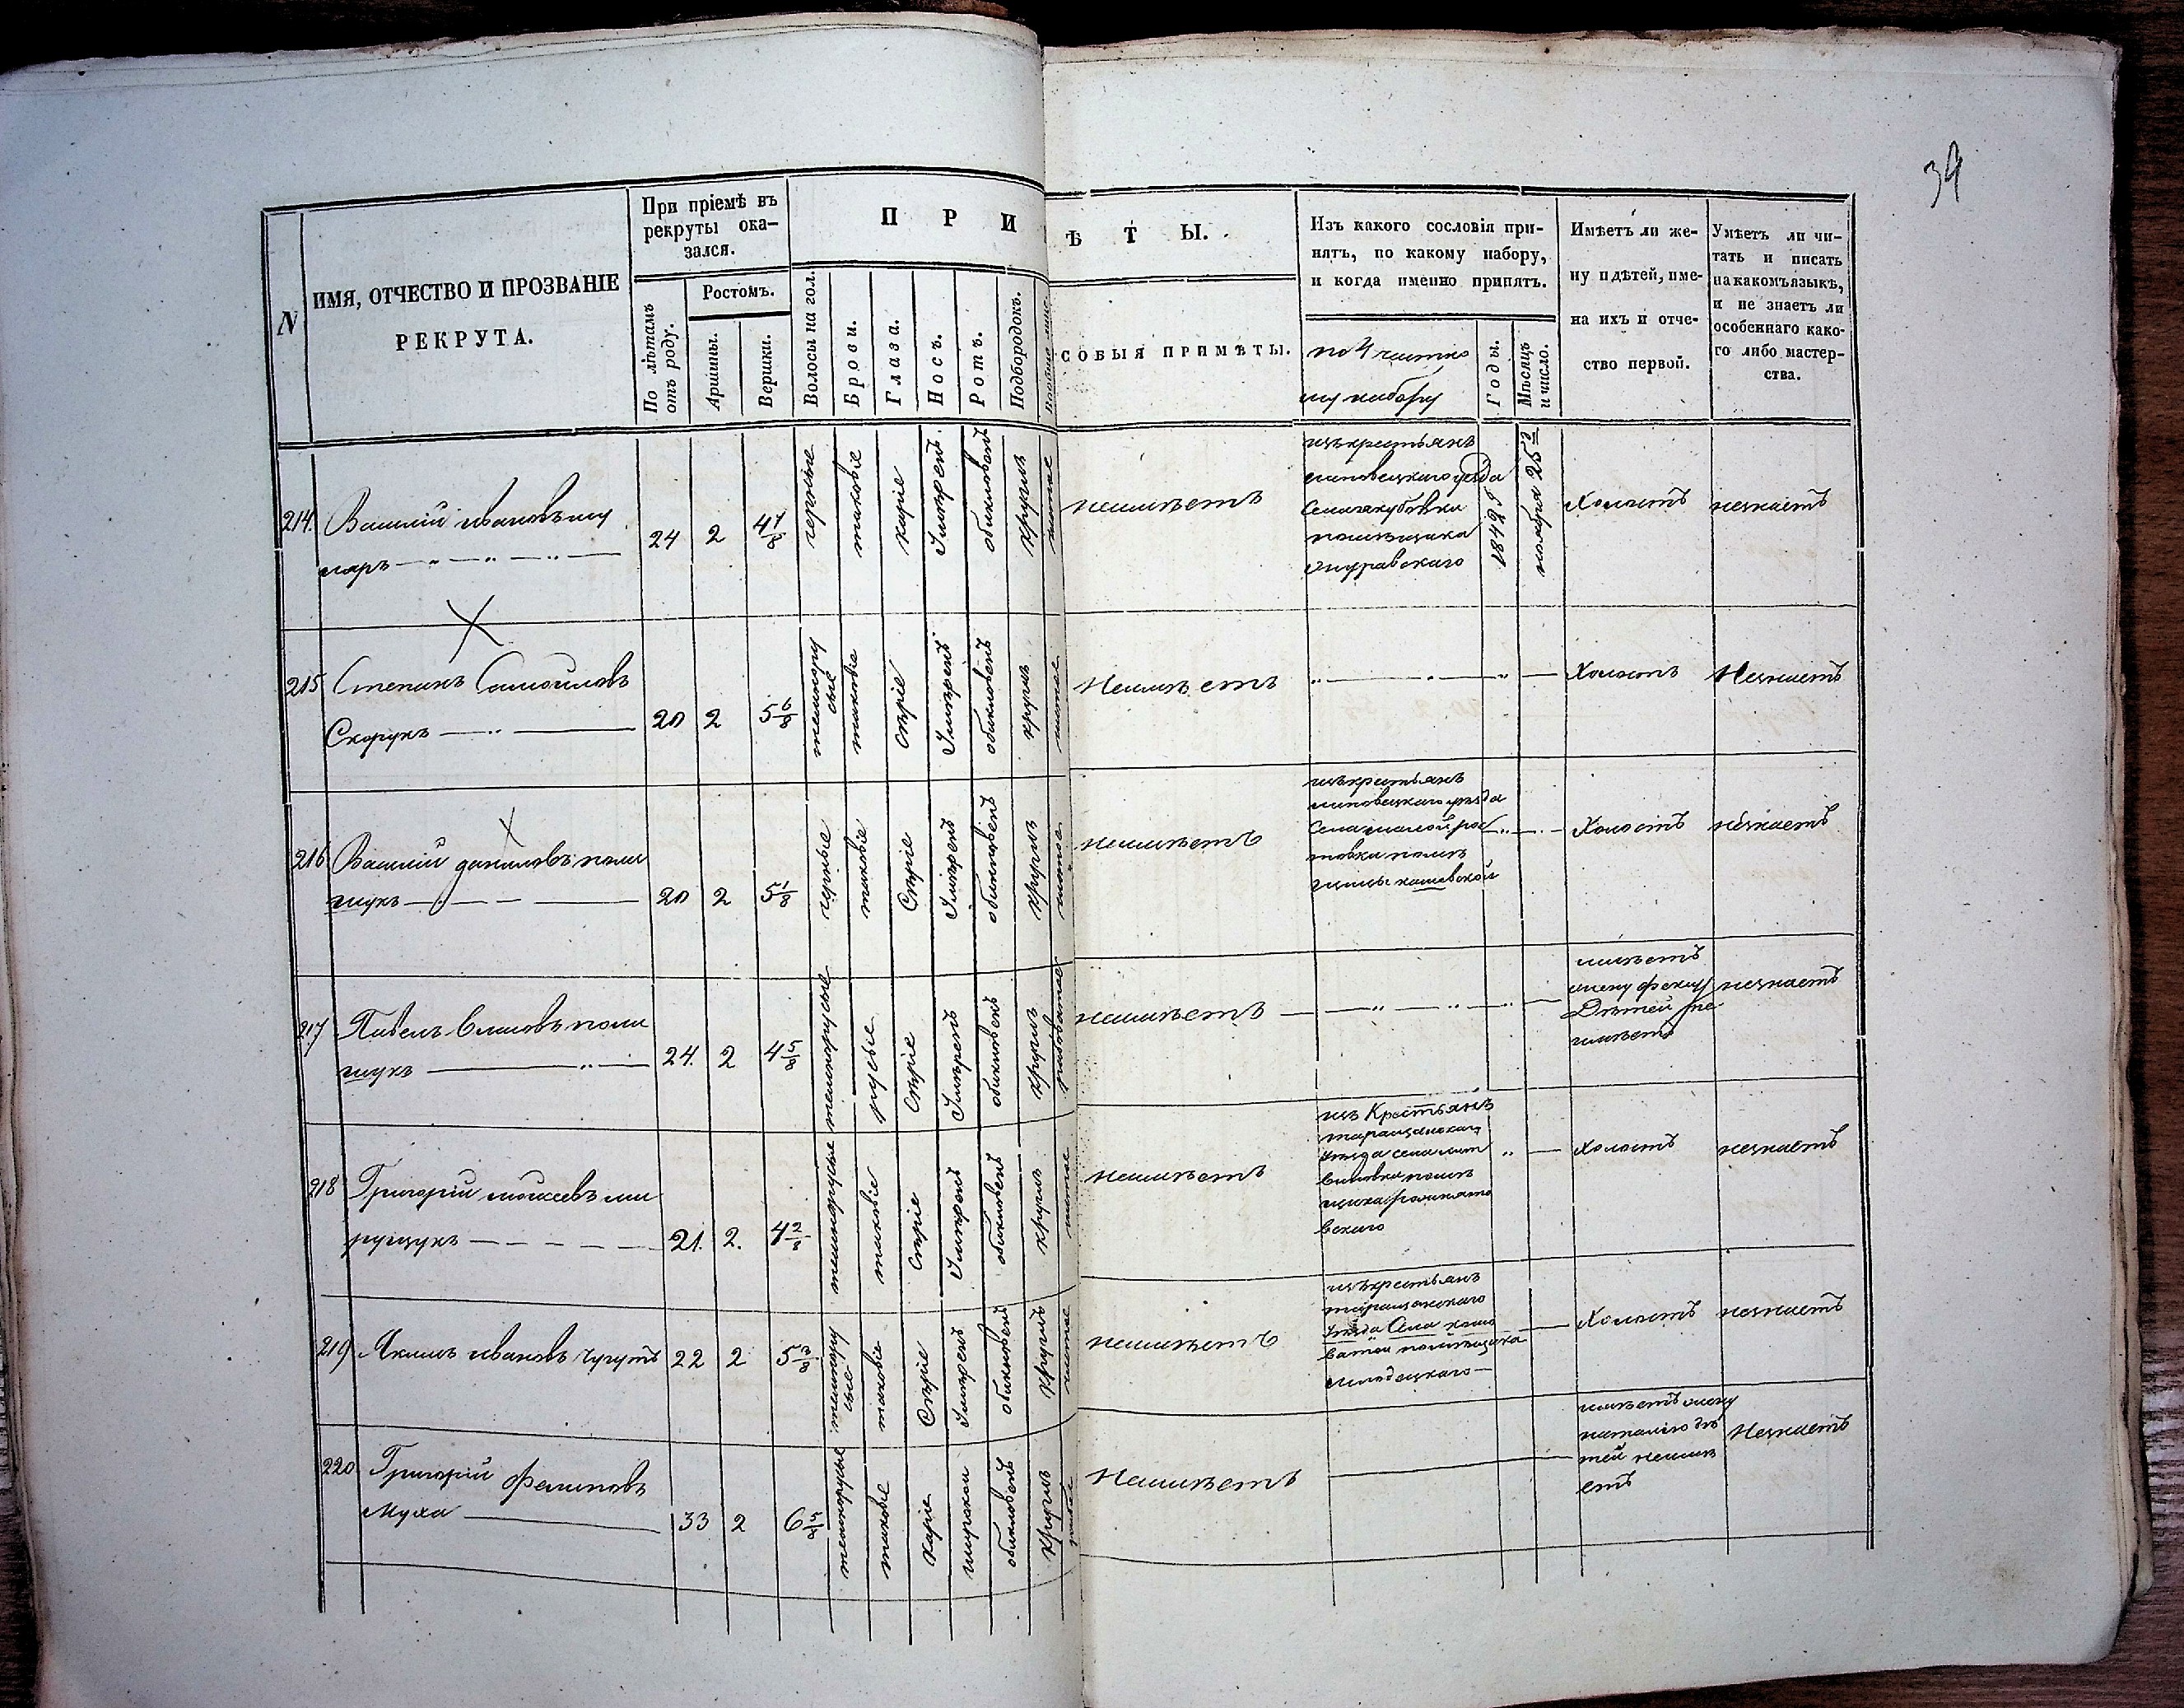 34
N
ИМЯ, ОТЧЕСТВО И ПРОЗВАНІЕ
РЕКРУТА.
При пріемѣ въ
рекруты ока-
зался.
По лѣтамъ
отъ роду.
Ростомъ.
Аршины.
Вершки.
П Р И
Ѣ Т Ы.
Волосы на гол.
Брови.
Глаза.
Носъ.
Ротъ.
Подбородокъ.
СОБЫЯ ПРИМѢТЫ.
Изъ какого сословія при-
нятъ, по какому набору,
и когда именно принятъ.
по 4 частно
му набору
Годы.
Мѣсяцъ
и число.
Имѣетъ ли же-
ну и дѣтей, име-
на ихъ и отче-
ство первой.
Умѣетъ ли чи-
тать и писать
на какомъ языкѣ,
и не знаетъ ли
особеннаго како-
го либо мастер-
ства.
214.
Василій Ивановъ
24
2
4
черные
таковіе
каріе
Умѣрен.
обикновен
кругла
чистое
неимѣетъ
изъ крестьянъ
липовецкаго уѣзда
Села якубовки
помѣщика
1849
ноября 25
Холостъ
незнаетъ
215
Степанъ Самойловъ
Скорукъ
20
2
5 6/8
темнору
сые
таковіе
Сѣріе
Умѣрен
обикновен
кругла
чистое
Неимѣетъ
Холостъ
Незнаетъ
216
Василій даниловъ поли
щукъ
20
2
5 1/8
чёрные
таковіе
Сѣріе
Умѣрен
обикновен
кругла
чистое
неимѣетъ
изъ крестьянъ
липовецкаго уѣзда
Села малой рос
товки помѣ
щицы
Холостъ
незнаетъ
217
Павелъ Власовъ поли
щукъ
24.
2
4 5/8
темнорусые
русые
Сѣріе
Умѣрен
обикновен
кругла
рябоватое
неимѣетъ
имѣетъ
жену феклу
Дѣтей не
имѣетъ
незнаетъ
218
Григорій моисеевъ
21.
2.
4 2/8
темнорусые
таковіе
Сѣріе
Умѣрен
обикновен
кругла
чистое
неимѣетъ
изъ Крестьянъ
таращанскаго
Уѣзда села
помѣ
щика
вскаго
холостъ
незнаетъ
219
Якимъ Ивановъ
22
2
5 3/8
темнору
сые
таковіе
Сѣріе
Умѣрен
обикновен
кругла
чистое
неимѣетъ
изъ крестьянъ
таращанскаго
Уѣзда Села
ватой помѣщика
Холостъ
незнаетъ
220
Григорій Филиповъ
Муха
33
2
6 5/8
темнорусые
таковые
каріе
широкои
обикновен
кругла
Неимѣетъ
имѣетъ жену
наталію дѣ
тей неимѣ
етъ
Незнаетъ